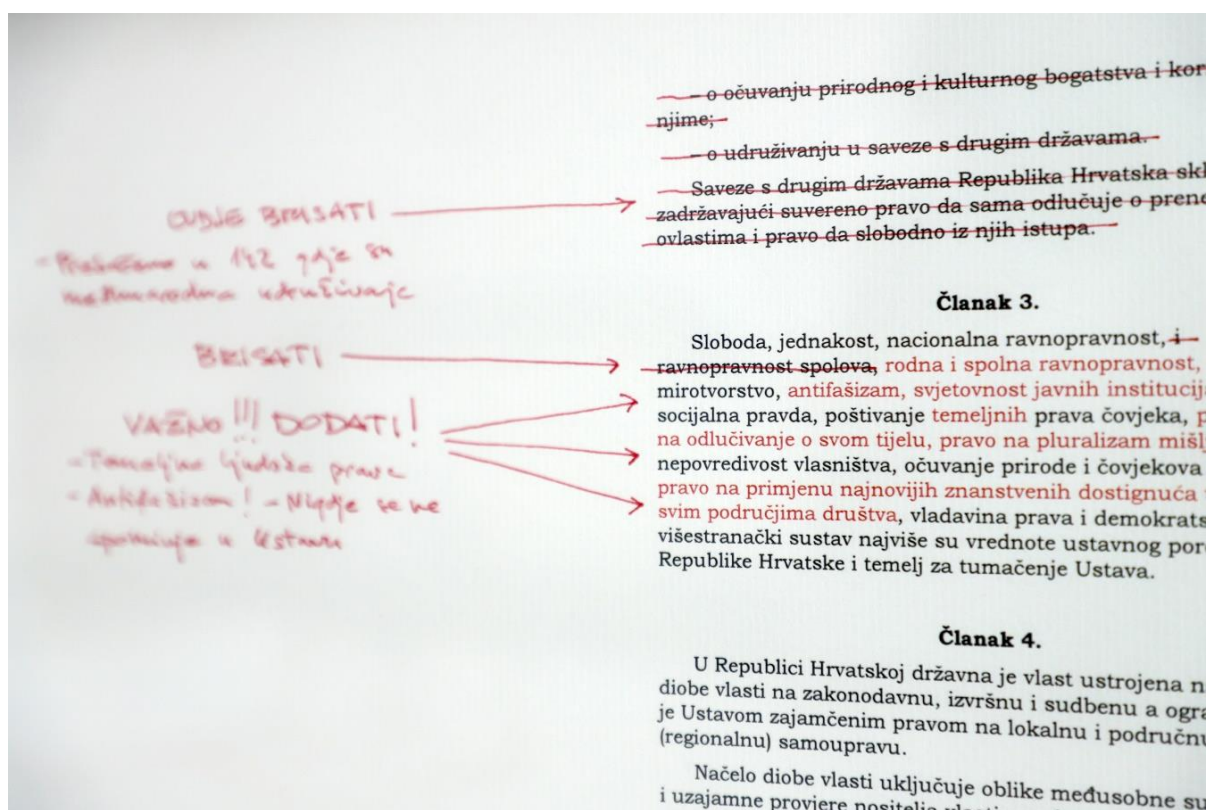 – o očuvanju prirodnog i kulturnog bogatstva i kor
njime;
– o udruživanju u saveze s drugim državama.
Saveze s drugim državama Republika Hrvatska skl
zadržavajući suvereno pravo da sama odlučuje o pren
ovlastima i pravo da slobodno iz njih istupa.
OVDJE BRISATI
- Prebačeno u 142 gdje su
međunarodna udruživanje
Članak 3.
BRISATI
Sloboda, jednakost, nacionalna ravnopravnost, i
ravnopravnost spolova, rodna i spolna ravnopravnost,
mirotvorstvo, antifašizam, svjetovnost javnih institucij
socijalna pravda, poštivanje temeljnih prava čovjeka, p
na odlučivanje o svom tijelu, pravo na pluralizam mišlj
nepovredivost vlasništva, očuvanje prirode i čovjekova
pravo na primjenu najnovijih znanstvenih dostignuća
svim područjima društva, vladavina prava i demokrats
višestranački sustav najviše su vrednote ustavnog por
Republike Hrvatske i temelj za tumačenje Ustava.
VAŽNO!!! DODATI!
- Temeljna ljudska prava
- Antifašizam! - Nigdje se ne
spominje u Ustavu
Članak 4.
U Republici Hrvatskoj državna je vlast ustrojena n
diobe vlasti na zakonodavnu, izvršnu i sudbenu a ogra
je Ustavom zajamčenim pravom na lokalnu i područnu
(regionalnu) samoupravu.
Načelo diobe vlasti uključuje oblike međusobne su
i uzajamne provjere nositelja vlasti